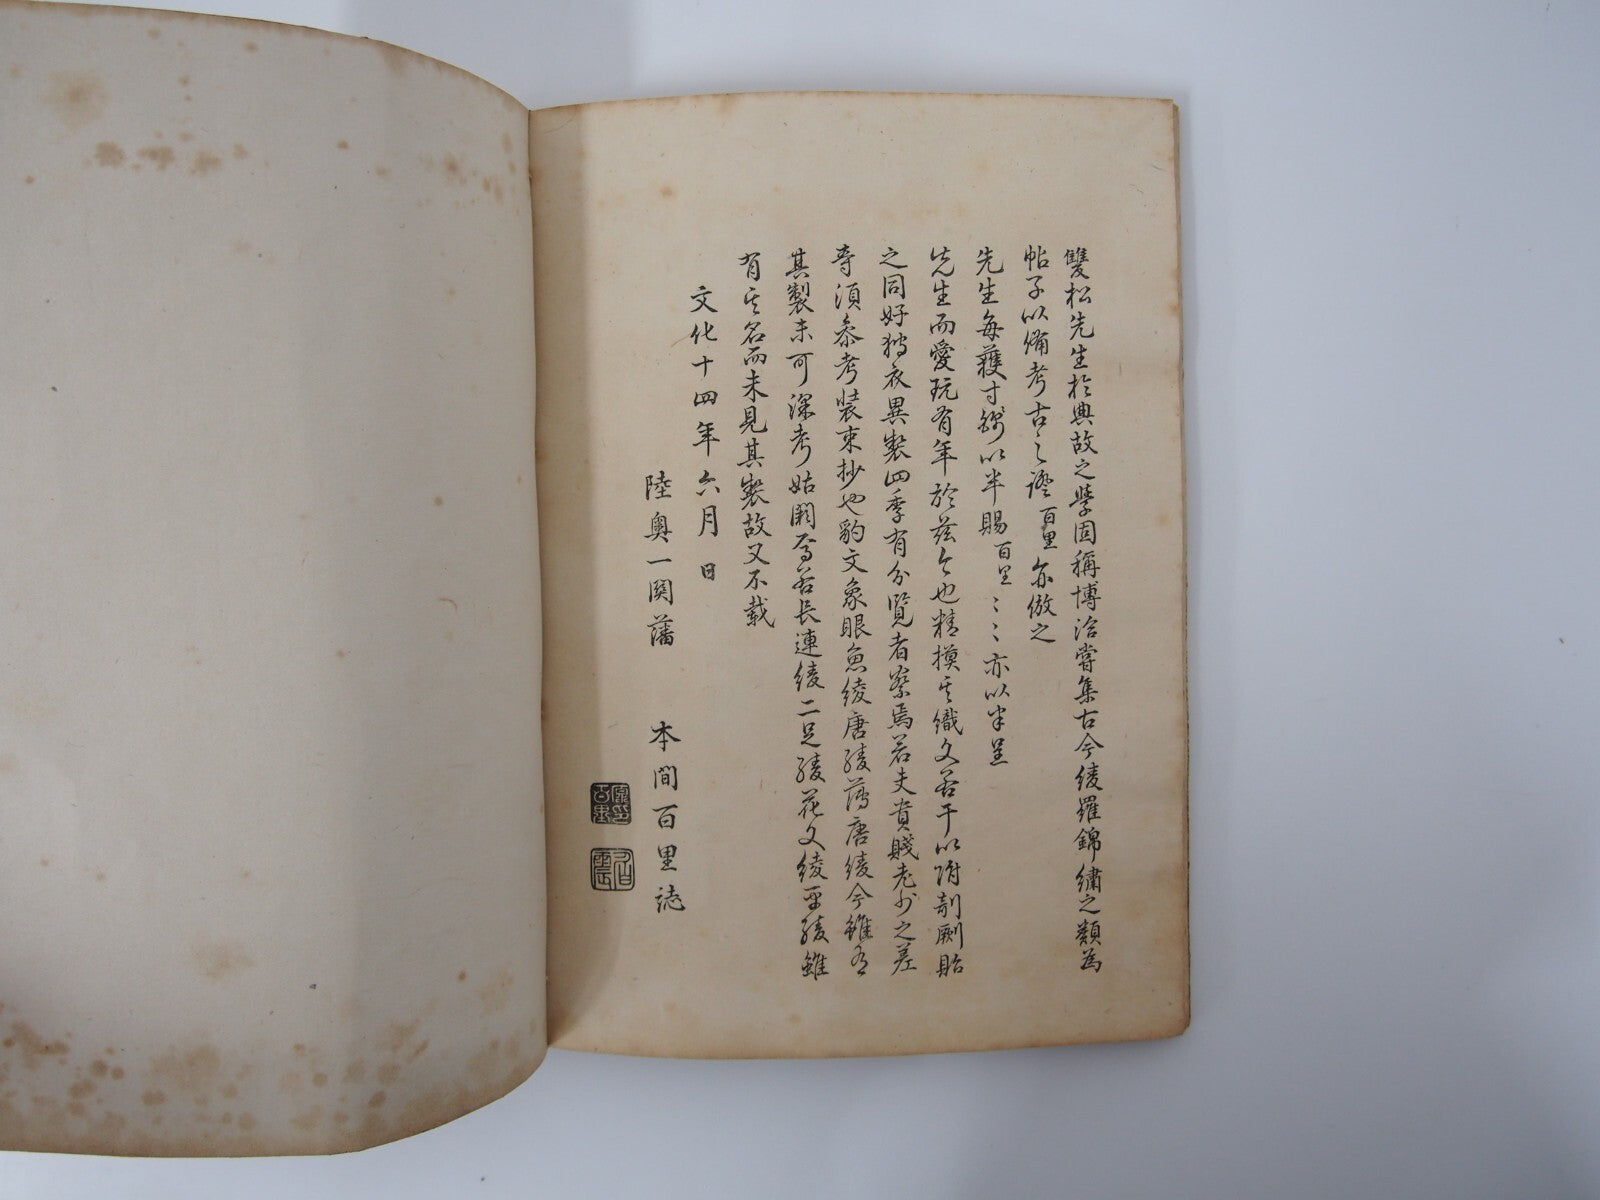 雙松先生於典故之學固稱博洽嘗集古今綾羅錦繡之類為
帖子以備考古之證百里亦倣之
先生每獲寸錦以半賜百里〻〻亦以半呈
先生而愛玩有年於茲今也精摸其織文若干以附剞劂貽
之同好狩衣異製四季有分覧者察焉若夫貴賤老少之差
等須參考装束抄也豹文象眼魚綾唐綾薄唐綾今雖有
其製未可深考姑闕焉若長連綾二足綾花文綾平綾雖
有其名而未見其製故又不載
文化十四年六月日
陸奥一関藩 本間百里誌